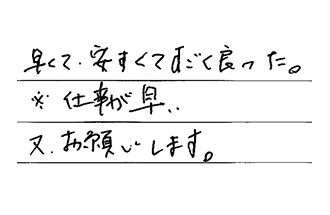 早くて、安すくてすごく良った。
※ 仕事が早い
又、お願いします。